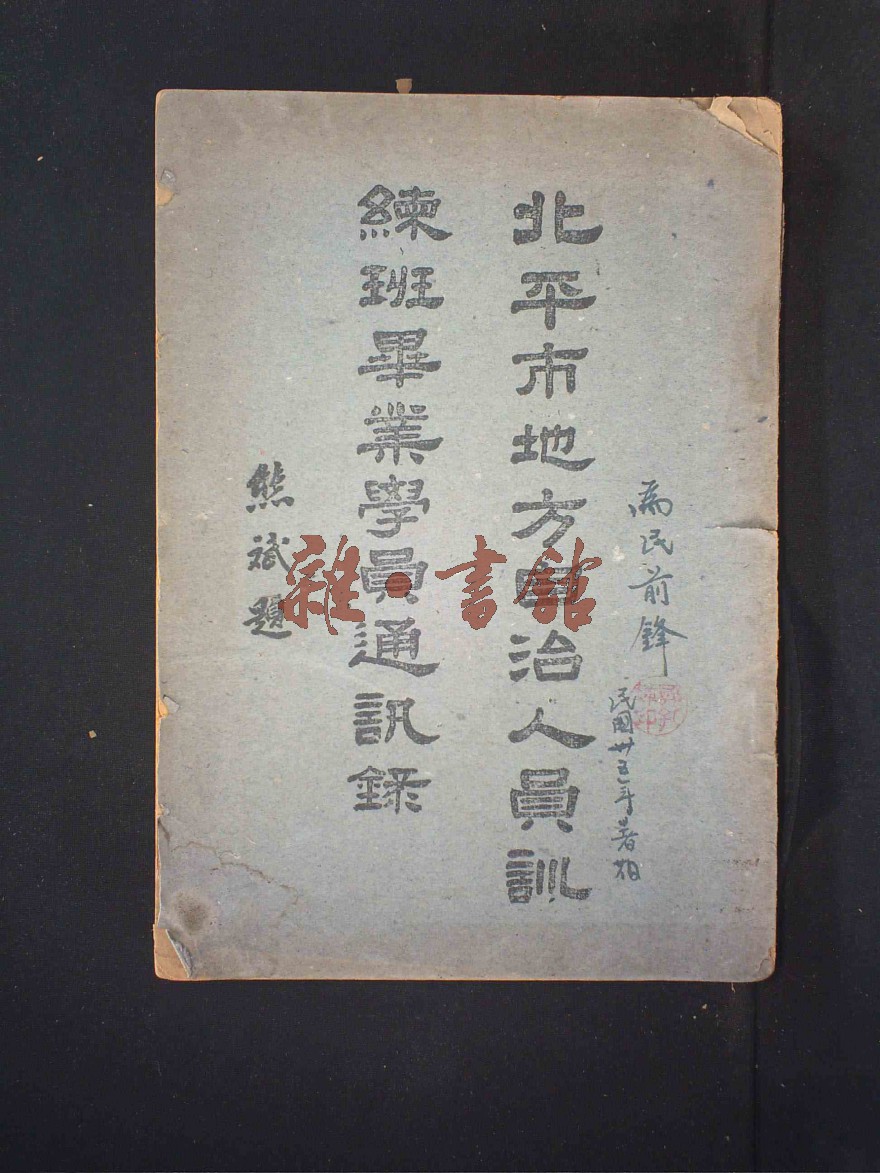 為民前鋒
民國卅五年暑
北平市地方自治人員訓
練班畢業學員通訊錄
熊斌題
雜·書舘